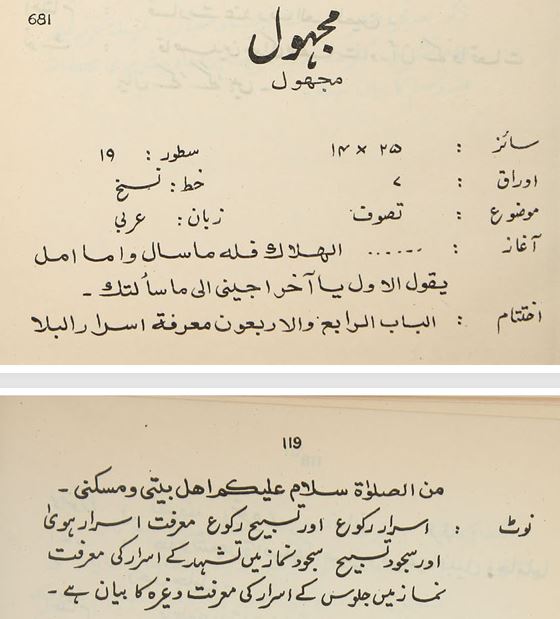 681
مجہول
مجهول
سائز : ۲۵ × ۱۴ سطور : ۱۹
اوراق : ۷ خط : نسخ
موضوع : تصوف زبان : عربی
آغاز : ...... الهلاك فله ماسال واما امل
يقول الاول يا آخر اجينى الى ماسألتك ـ
اختتام : الباب الرابع والاربعون معرفة اسرار البلا
119
من الصلوٰة سلام عليكم اهل بيتى ومسكنى ـ
نوٹ : اسرار رکوع اور تسبیح رکوع معرفت اسرار ہویٰ
اور سجود تسبیح سجود نماز میں تشہد کے اسرار کی معرفت
نماز میں جلوس کے اسرار کی معرفت وغیرہ کا بیان ہے ۔